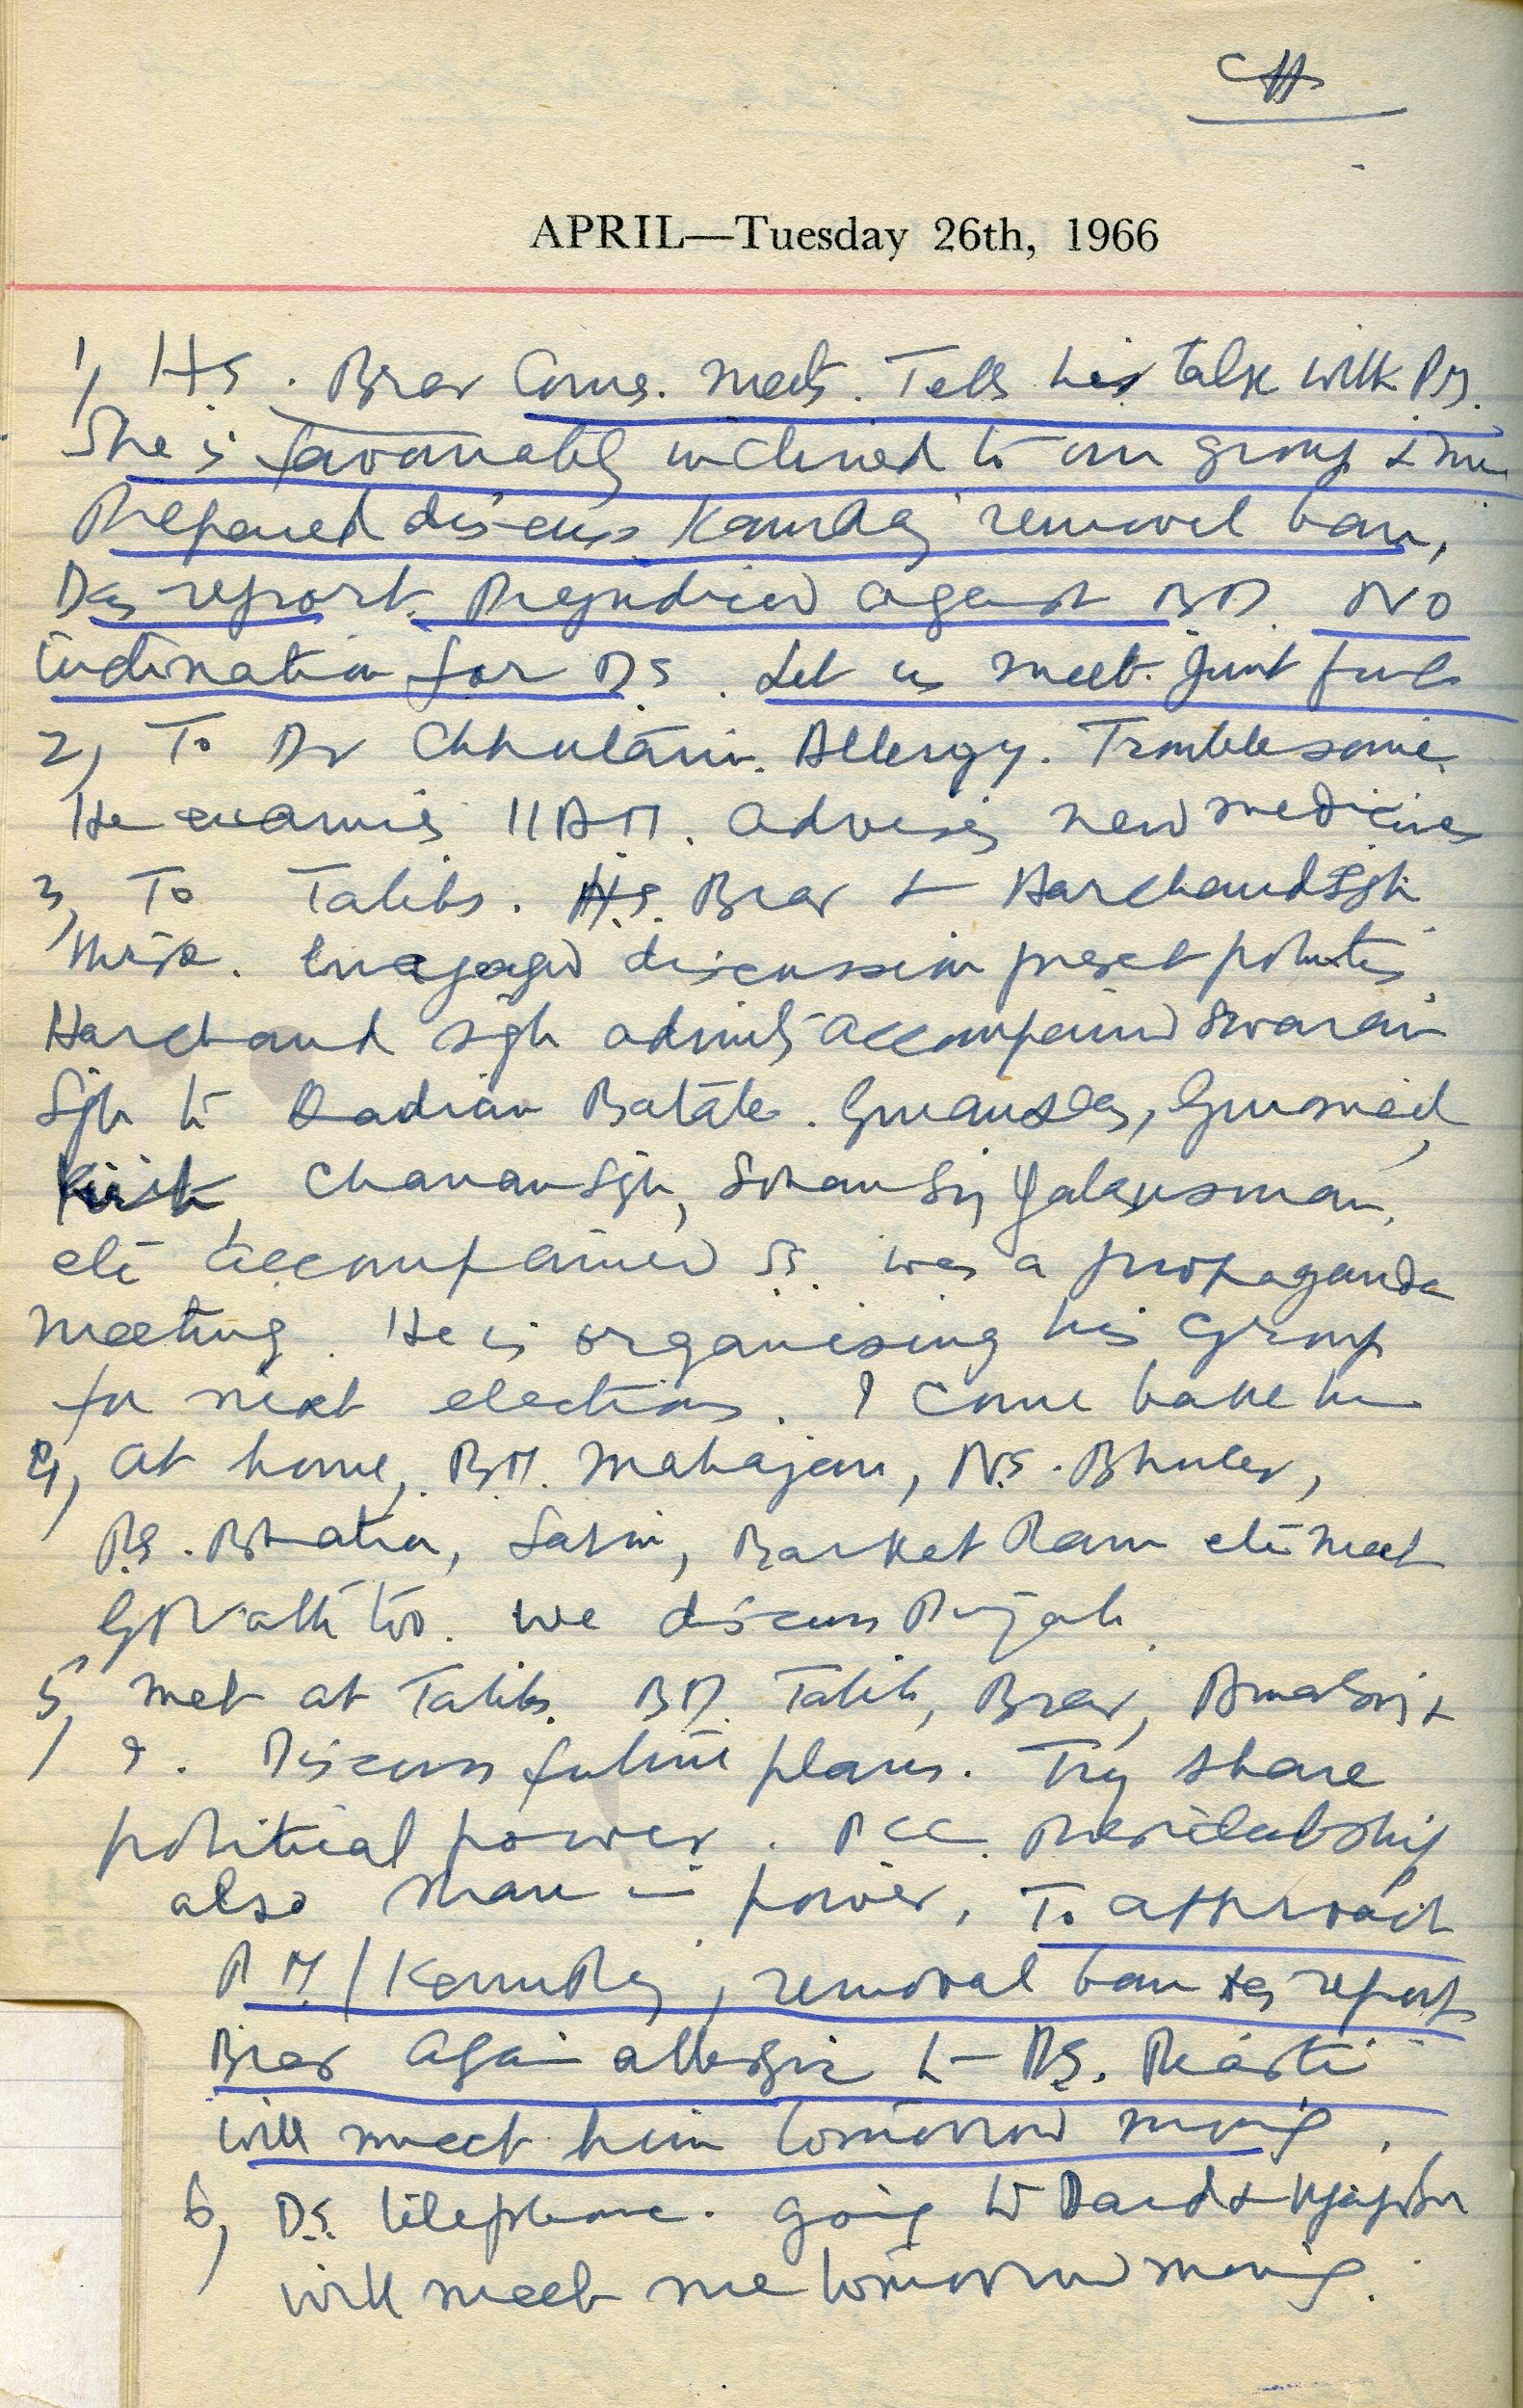 CH
APRIL—Tuesday 26th, 1966
1, HS. Brar Comes. Meets. Tells his talk with PM.
She is favourably inclined to our group &
Prepared discuss Kamraj removal ban,
Das report. Prejudiced against BD. No
inclination for DS. Let us meet. Joint
2, To Dr Chhutani. Allergy. Troublesome.
He examines 11 AM. advises new medicines
3, To Talibs. H.S. Brar & Harchand Sgh
there. engaged discussion present politics
Harchand Sgh admits accompanied Swaran
Sgh to Qadian Batala. Gurandas, Gurmeet,
Chanan Sgh, Sohan Sing Jalausman,
etc accompanied SS. was a propaganda
meeting. He is organising his Group
for next elections. I come back home
4, at home, B.M. Mahajan, N.S. Bhuler,
P.S. Bhatia, Barket Ram etc meet
too. we discuss Punjab.
5, met at Talibs. BD. Talib, Brar, &
I. Discuss future plans. Try share
political power. PCC. Presidentship
also share in power. To approach
P.M./Kamraj, removal ban Das report
Brar again allergic to DS.
will meet him tomorrow morning.
6, D.S. telephone. going to Dard &
will meet me tomorrow morning.